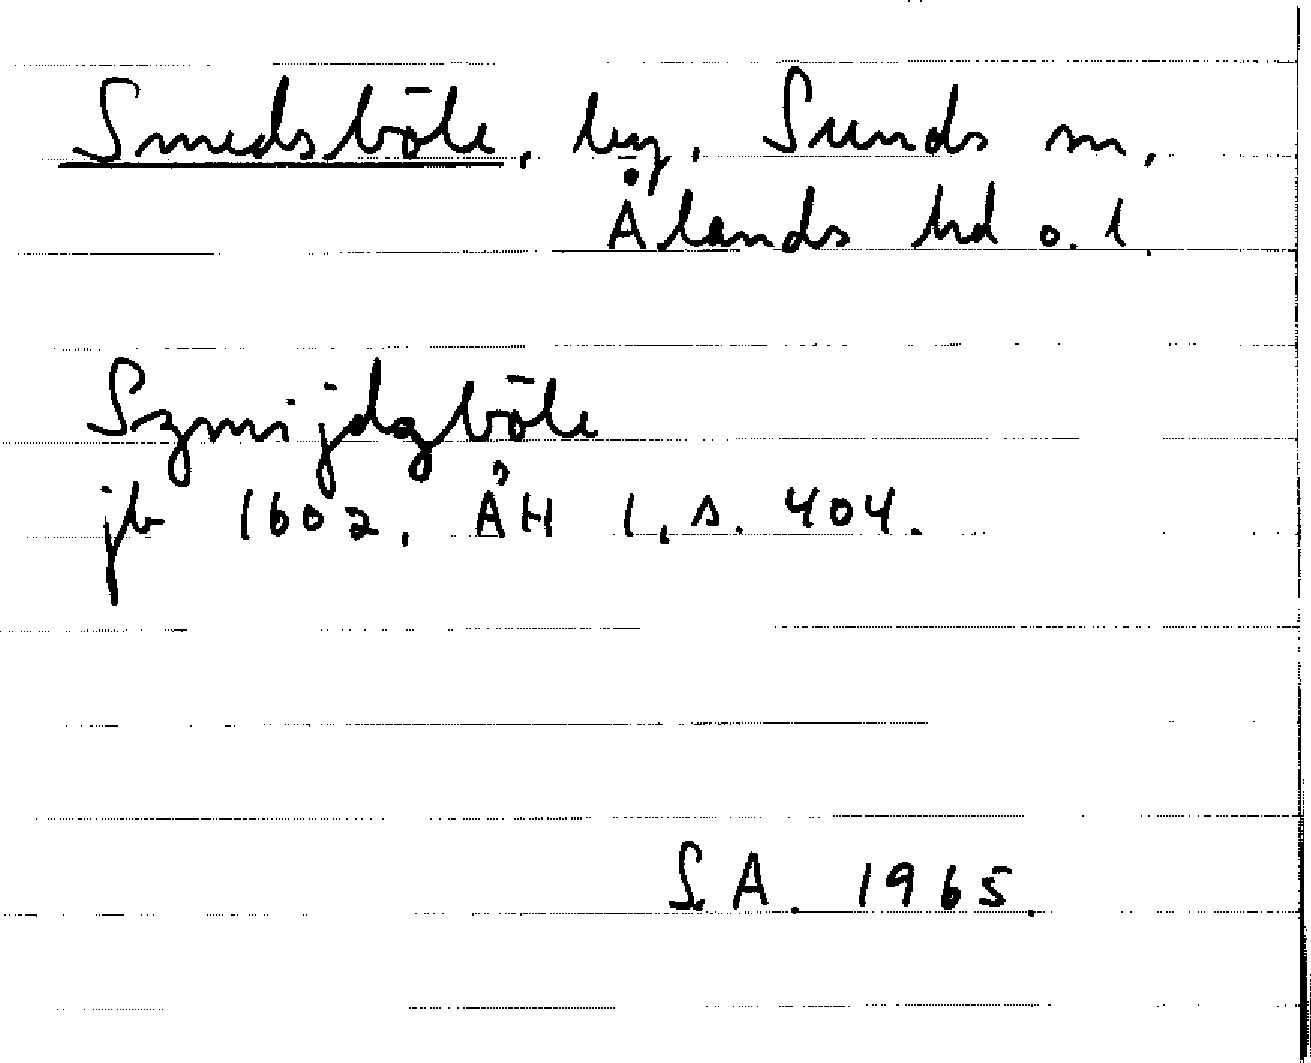 Smedsböle, by, Sunds sn,
Ålands hd o. l.
Szmijdzböle
jb 1602, ÅH 1, s. 404.
S.A. 1965.